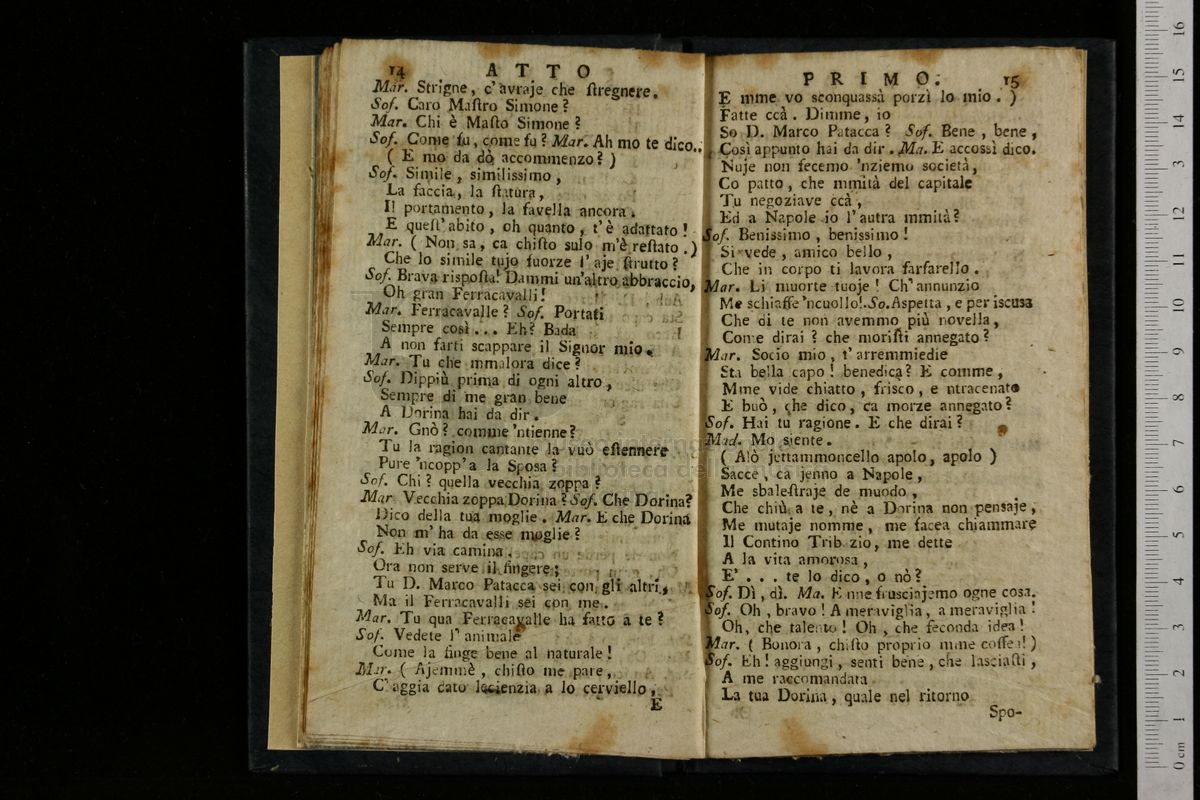 14 ATTO
Mar. Strigne, c'avraje che ſtregnere.
Sof. Caro Maſtro Simone?
Mar. Chi è Maſto Simone?
Sof. Come fu, come fu? Mar. Ah mo te dico..
( E mo da dò accommenzo? )
Sof. Simile, similissimo,
La faccia, la ſtatura,
Il portamento, la favella ancora.
E queſt'abito, oh quanto, t'è adattato!
Mar. ( Non sa, ca chiſto sulo m'è reſtato. )
Che lo simile tujo fuorze l'aje ſtrutto?
Sof. Brava rispoſta! Dammi un'altro abbraccio,
Oh gran Ferracavalli!
Mar. Ferracavalle? Sof. Portati
Sempre così... Eh? Bada
A non farti scappare il Signor mio.
Mar. Tu che mmalora dice?
Sof. Dippiù prima di ogni altro,
Sempre di me gran bene
A Dorina hai da dir.
Mar. Gnò? comme 'ntienne?
Tu la ragion cantante la vuò eſtennere
Pure 'ncopp'a la Sposa?
Sof. Chi? quella vecchia zoppa?
Mar Vecchia zoppa Dorina? Sof. Che Dorina?
Dico della tua moglie. Mar. E che Dorina
Non m'ha da esse moglie?
Sof. Eh via camina.
Ora non serve il fingere;
Tu D. Marco Patacca sei con gli altri,
Ma il Ferracavalli sei con me.
Mar. Tu qua Ferracavalle ha fatto a te?
Sof. Vedete l'animale
Come la finge bene al naturale!
Mar. ( Ajemmè, chiſto me pare,
C'aggia dato lecienzia a lo cerviello,
E
PRIMO. 15
E mme vo sconquassà porzì lo mio. )
Fatte ccà. Dimme, io
So D. Marco Patacca? Sof. Bene, bene,
Così appunto hai da dir. Ma. E accossì dico.
Nuje non fecemo 'nziemo società,
Co patto, che mmità del capitale
Tu negoziave ccà,
Ed a Napole io l'autra mmità?
Sof. Benissimo, benissimo!
Si vede, amico bello,
Che in corpo ti lavora farfarello.
Mar. Li muorte tuoje! Ch'annunzio
Me schiaffe 'ncuollo!. So. Aspetta, e per iscusa
Che di te non avemmo più novella,
Come dirai? che moriſti annegato?
Mar. Socio mio, t'arremmiedie
Sta bella capo! benedica? E comme,
Mme vide chiatto, frisco, e ntracenato
E buò, che dico, ca morze annegato?
Sof. Hai tu ragione. E che dirai?
Mad. Mo siente.
( Alò jettammoncello apolo, apolo )
Sacce, ca jenno a Napole,
Me sbaleſtraje de muodo,
Che chiù a te, nè a Dorina non pensaje,
Me mutaje nomme, me facea chiammare
Il Contino Trib zio, me dette
A la vita amorosa,
E'... te lo dico, o nò?
Sof. Dì, dì. Ma. E nne frusciajemo ogne cosa.
Sof. Oh, bravo! A meraviglia, a meraviglia!
Oh, che talento! Oh, che feconda idea!
Mar. ( Bonora, chiſto proprio mme coffea! )
Sof. Eh! aggiungi, senti bene, che lasciaſti,
A me raccomandata
La tua Dorina, quale nel ritorno
Spo-